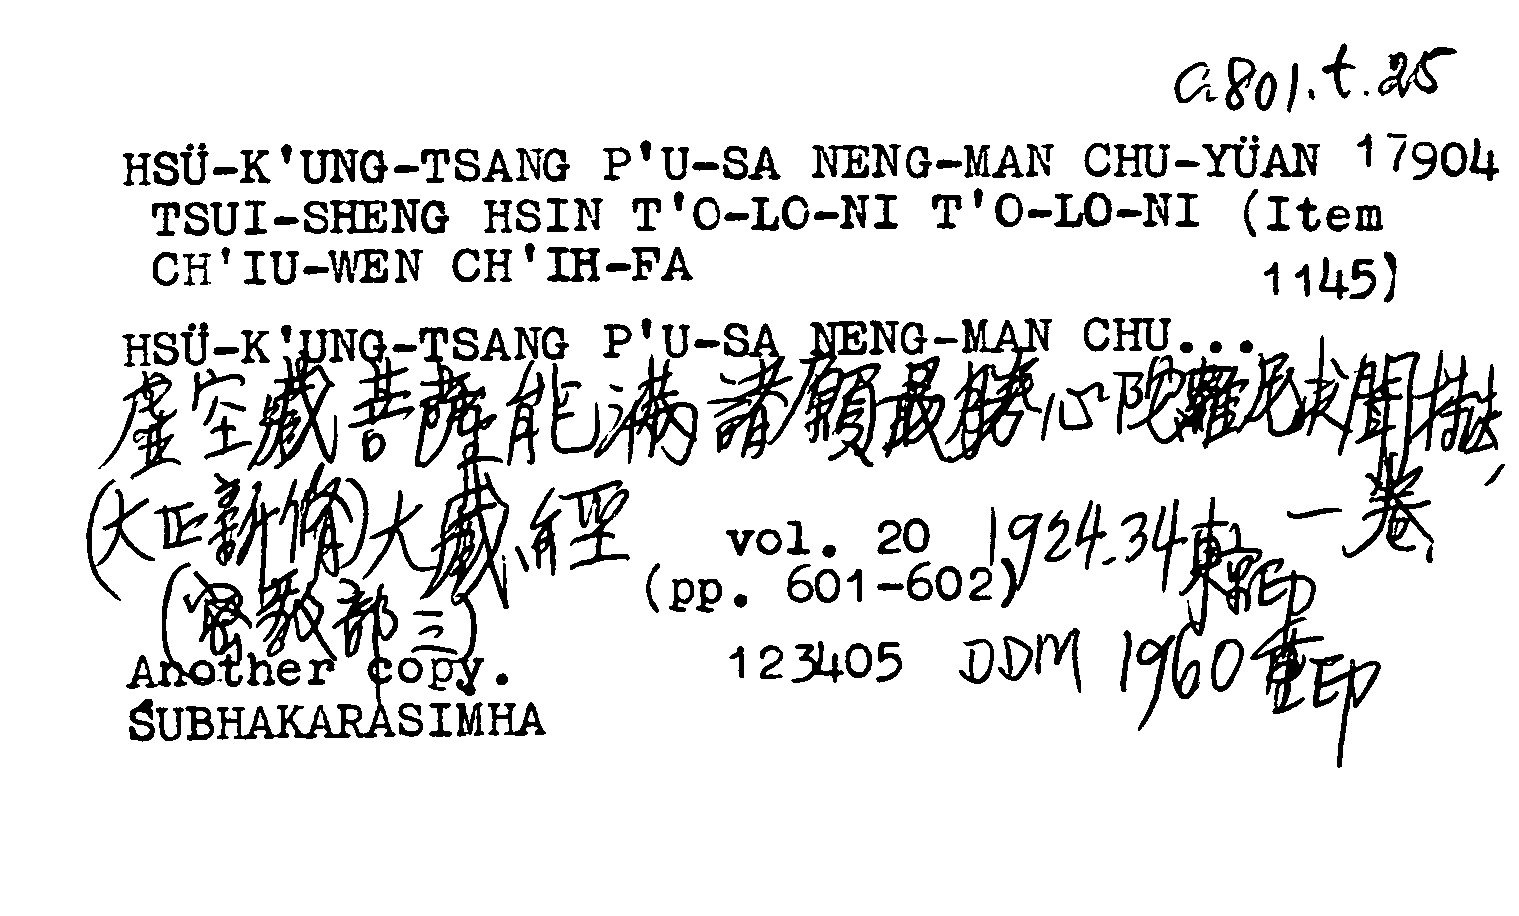 a.801.t.25
HSÜ-K'UNG-TSANG P'U-SA NENG-MAN CHU-YÜAN 17904
TSUI-SHENG HSIN T'O-LO-NI T'O-LO-NI (Item
CH'IU-WEN CH'IH-FA 1145)
HSÜ-K'UNG-TSANG P'U-SA NENG-MAN CHU...
虛空藏菩薩能滿諸願最勝心陀羅尼求聞持法
一卷
(大正新脩)大藏經 vol. 20 1924-34 東京印
(密教部三) (pp. 601-602)
Another copy. 123405 DDM 1960 重印
ŚUBHAKARASIMHA